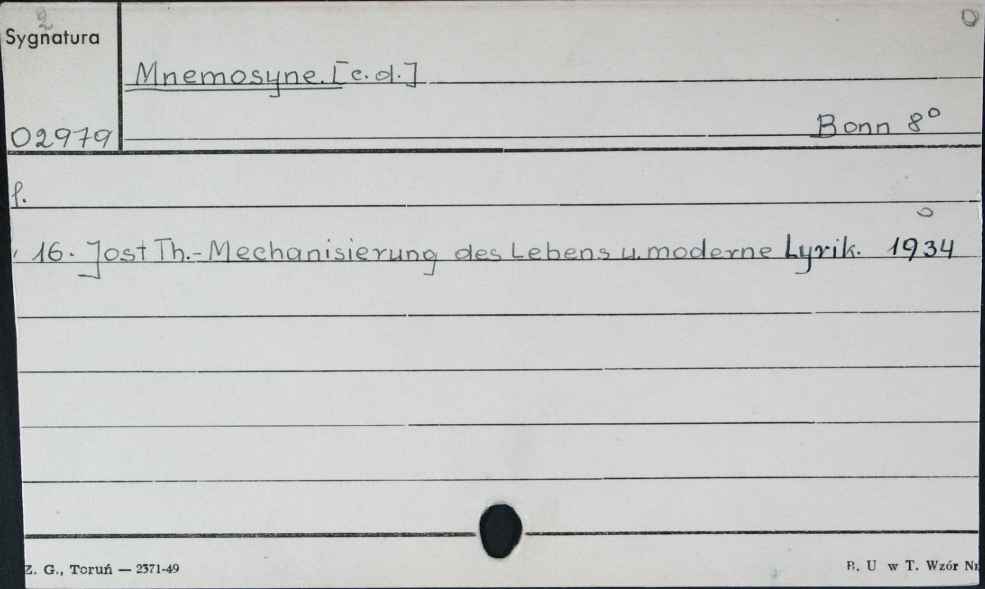 2
Sygnatura
Mnemosyne. [c.d.]
02979
Bonn 8°
f.
16. Jost Th.-Mechanisierung des Lebens u. moderne Lyrik. 1934
Z. G., Toruń — 2371-49
B. U w T. Wzór Nr